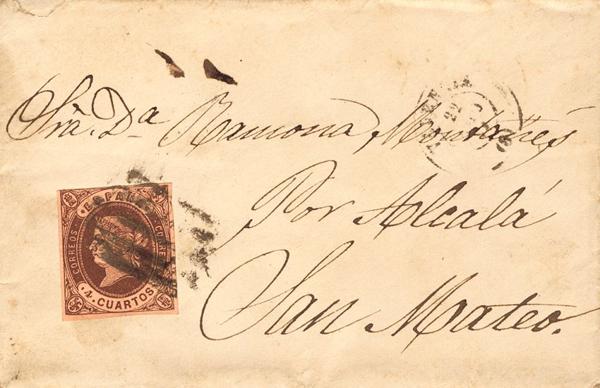 Sra. Da Ramona Montañés
Por Alcalá
San Mateo.
ESPAÑA
CORREOS
CORREOS
4 CUARTOS
22